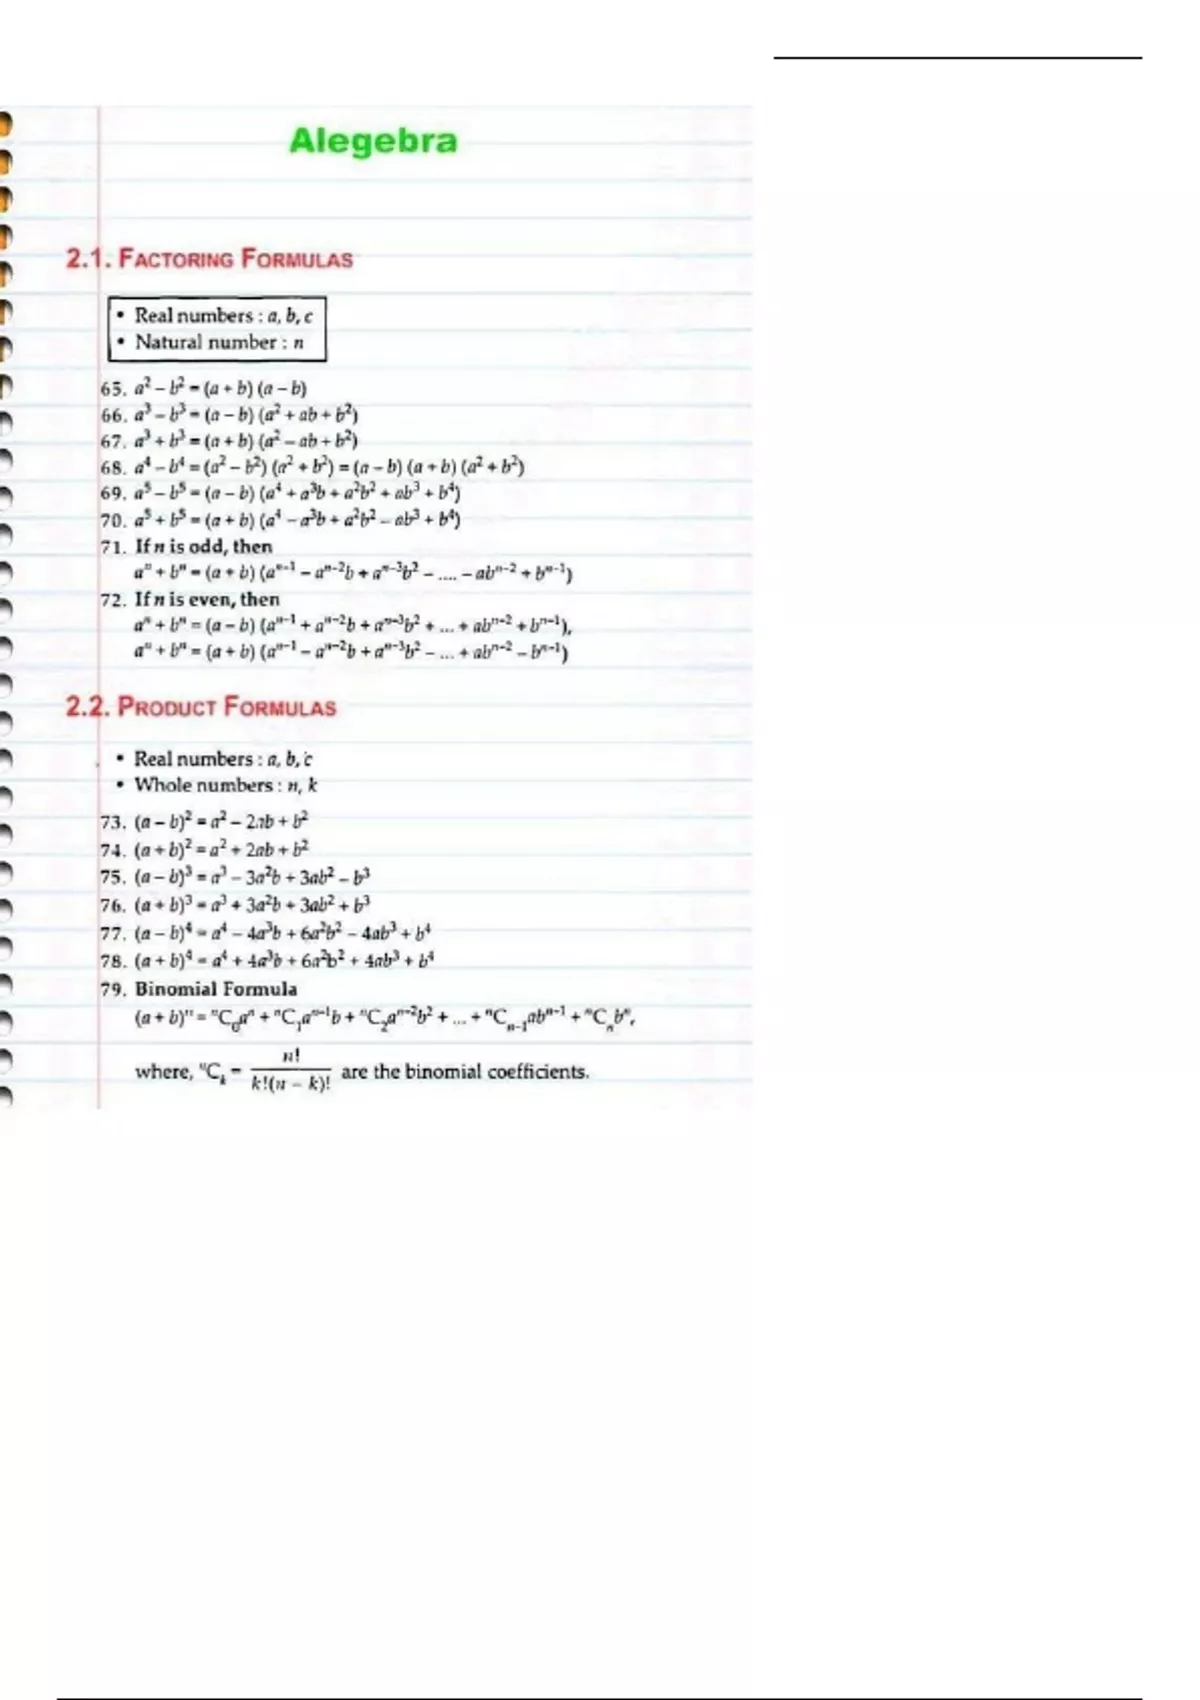 Alegebra
2.1. FACTORING FORMULAS
• Real numbers : a, b, c
• Natural number : n
65. a² – b² = (a + b) (a – b)
66. a³ – b³ = (a – b) (a² + ab + b²)
67. a³ + b³ = (a + b) (a² – ab + b²)
68. a⁴ – b⁴ = (a² – b²) (a² + b²) = (a – b) (a + b) (a² + b²)
69. a⁵ – b⁵ = (a – b) (a⁴ + a³b + a²b² + ab³ + b⁴)
70. a⁵ + b⁵ = (a + b) (a⁴ – a³b + a²b² – ab³ + b⁴)
71. If n is odd, then
aⁿ + bⁿ = (a + b) (aⁿ⁻¹ – aⁿ⁻²b + aⁿ⁻³b² – .... – abⁿ⁻² + bⁿ⁻¹)
72. If n is even, then
aⁿ + bⁿ = (a – b) (aⁿ⁻¹ + aⁿ⁻²b + aⁿ⁻³b² + ... + abⁿ⁻² + bⁿ⁻¹),
aⁿ + bⁿ = (a + b) (aⁿ⁻¹ – aⁿ⁻²b + aⁿ⁻³b² – ... + abⁿ⁻² – bⁿ⁻¹)
2.2. PRODUCT FORMULAS
• Real numbers : a, b, c
• Whole numbers : n, k
73. (a – b)² = a² – 2ab + b²
74. (a + b)² = a² + 2ab + b²
75. (a – b)³ = a³ – 3a²b + 3ab² – b³
76. (a + b)³ = a³ + 3a²b + 3ab² + b³
77. (a – b)⁴ = a⁴ – 4a³b + 6a²b² – 4ab³ + b⁴
78. (a + b)⁴ = a⁴ + 4a³b + 6a²b² + 4ab³ + b⁴
79. Binomial Formula
(a + b)ⁿ = ⁿC₀aⁿ + ⁿC₁aⁿ⁻¹b + ⁿC₂aⁿ⁻²b² + ... + ⁿCₙ₋₁abⁿ⁻¹ + ⁿCₙbⁿ,
where, ⁿCₖ = n! / k!(n – k)! are the binomial coefficients.